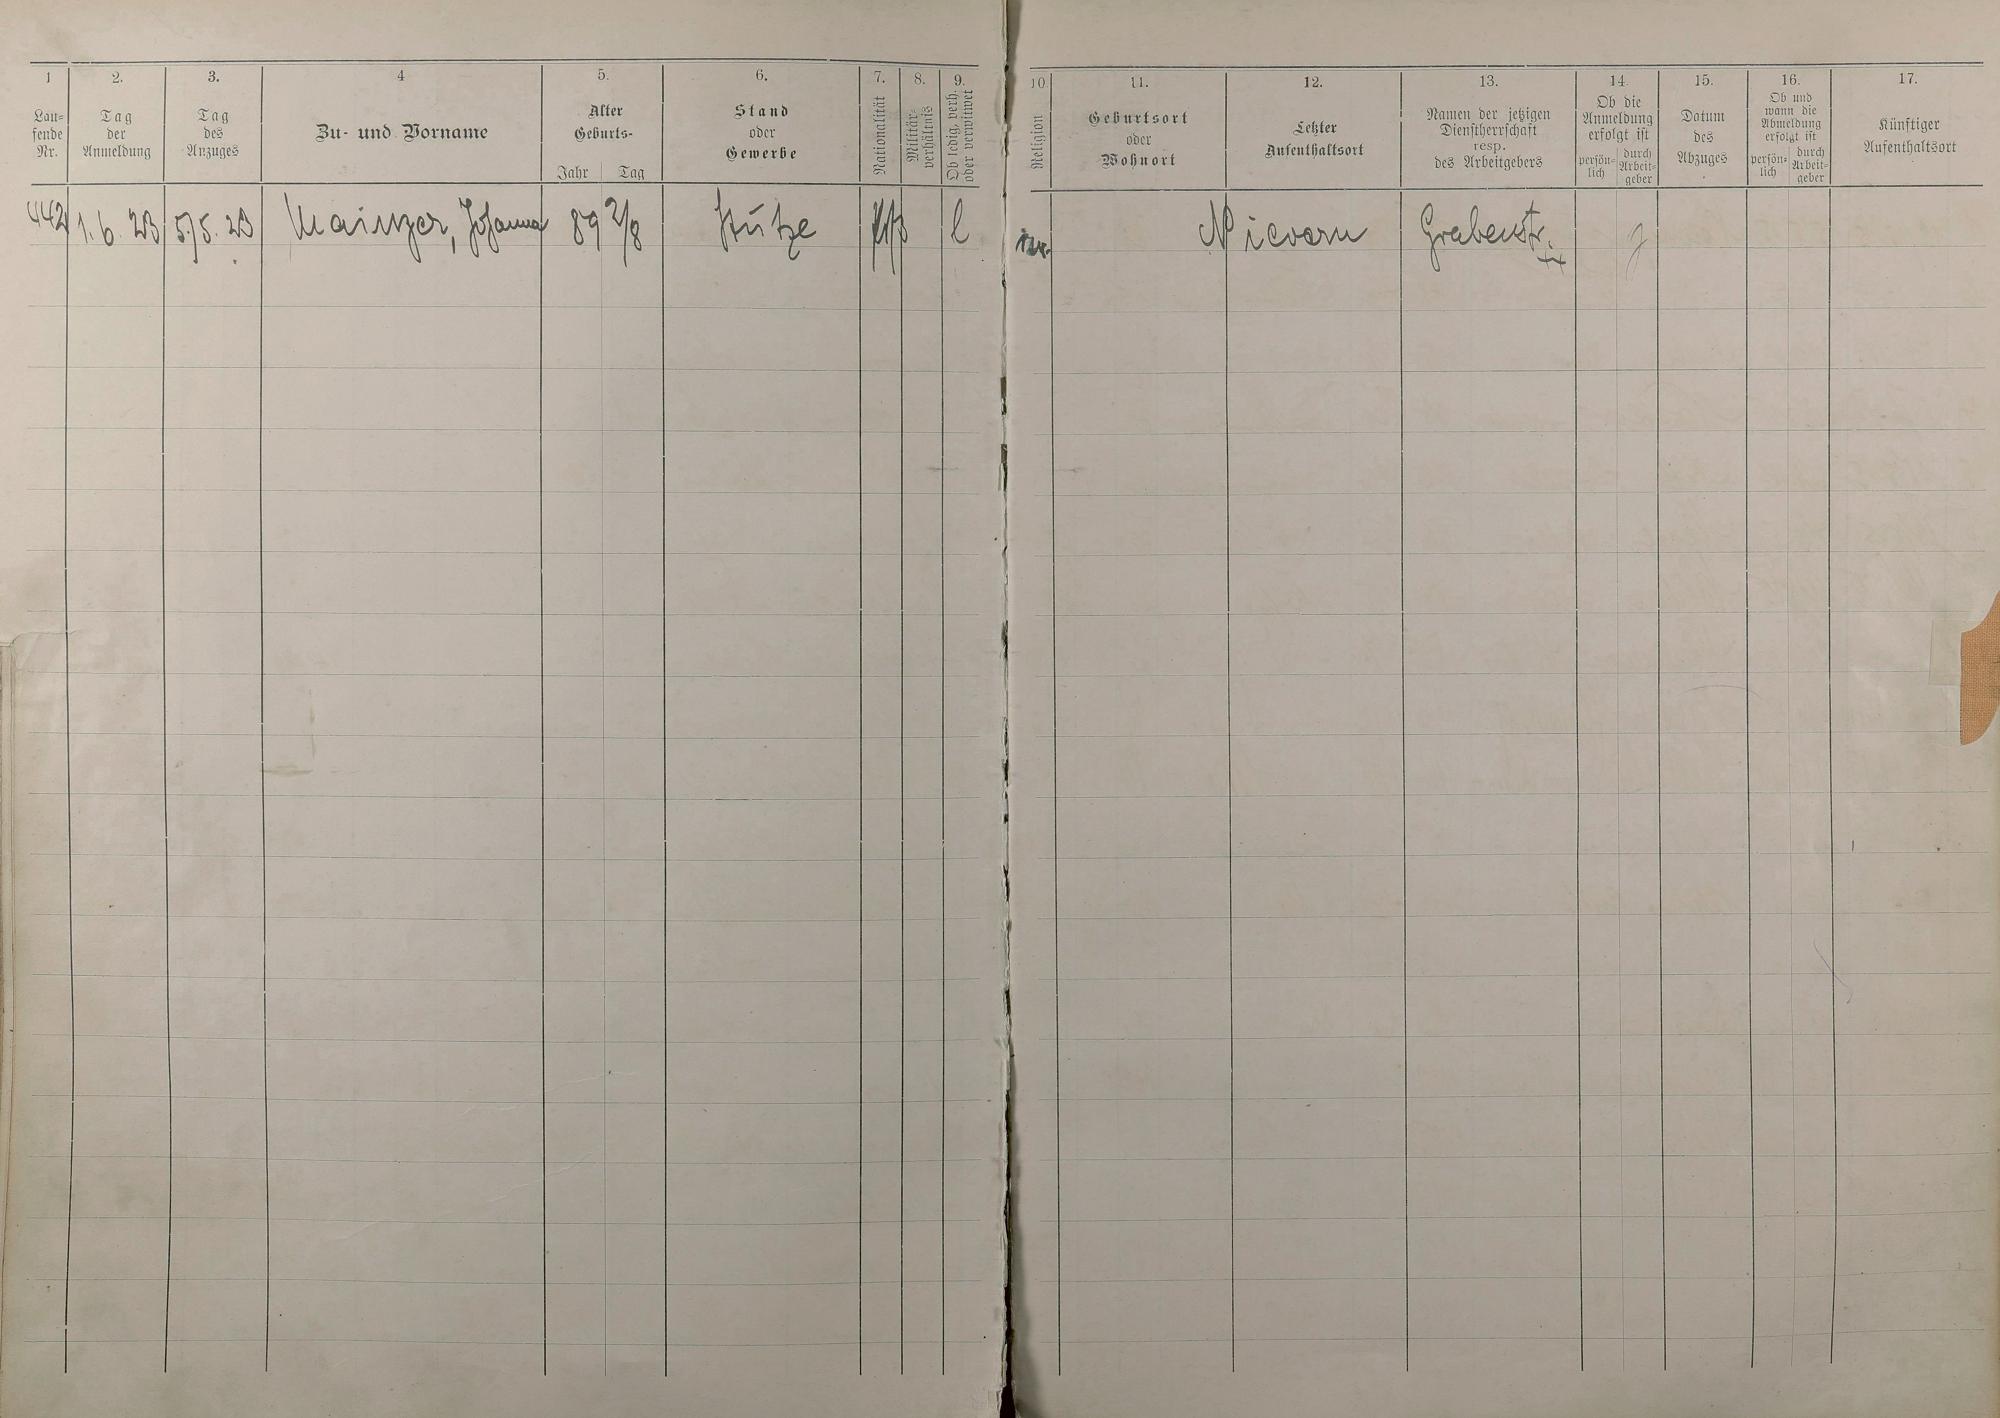 1 2. 3. 4 5. 6. 7. 8. 9. 10 11. 12. 13. 14. 15. 16. 17.
Lau=
fende
Nr.
Tag
der
Anmeldung
Tag
des
Anzuges
Zu- und Vorname
Alter
Geburts-
Jahr Tag
Stand
oder
Gewerbe
Nationalität
Militär-
verhältnis
Ob ledig, verh.
oder verwitwet
Religion
Geburtsort
oder
Wohnort
Letzter
Aufenthaltsort
Namen der jetzigen
Dienstherrschaft
resp.
des Arbeitgebers
Ob die
Anmeldung
erfolgt ist
persön=
lich
durch
Arbeit=
geber
Datum
des
Abzuges
Ob und
wann die
Abmeldung
erfolgt ist
persön=
lich
durch
Arbeit=
geber
Künftiger
Aufenthaltsort
442 1.6.23 5.5.23 Mainzer, Johanna 89 2/8 Stütze l Nievern Grabenstr.